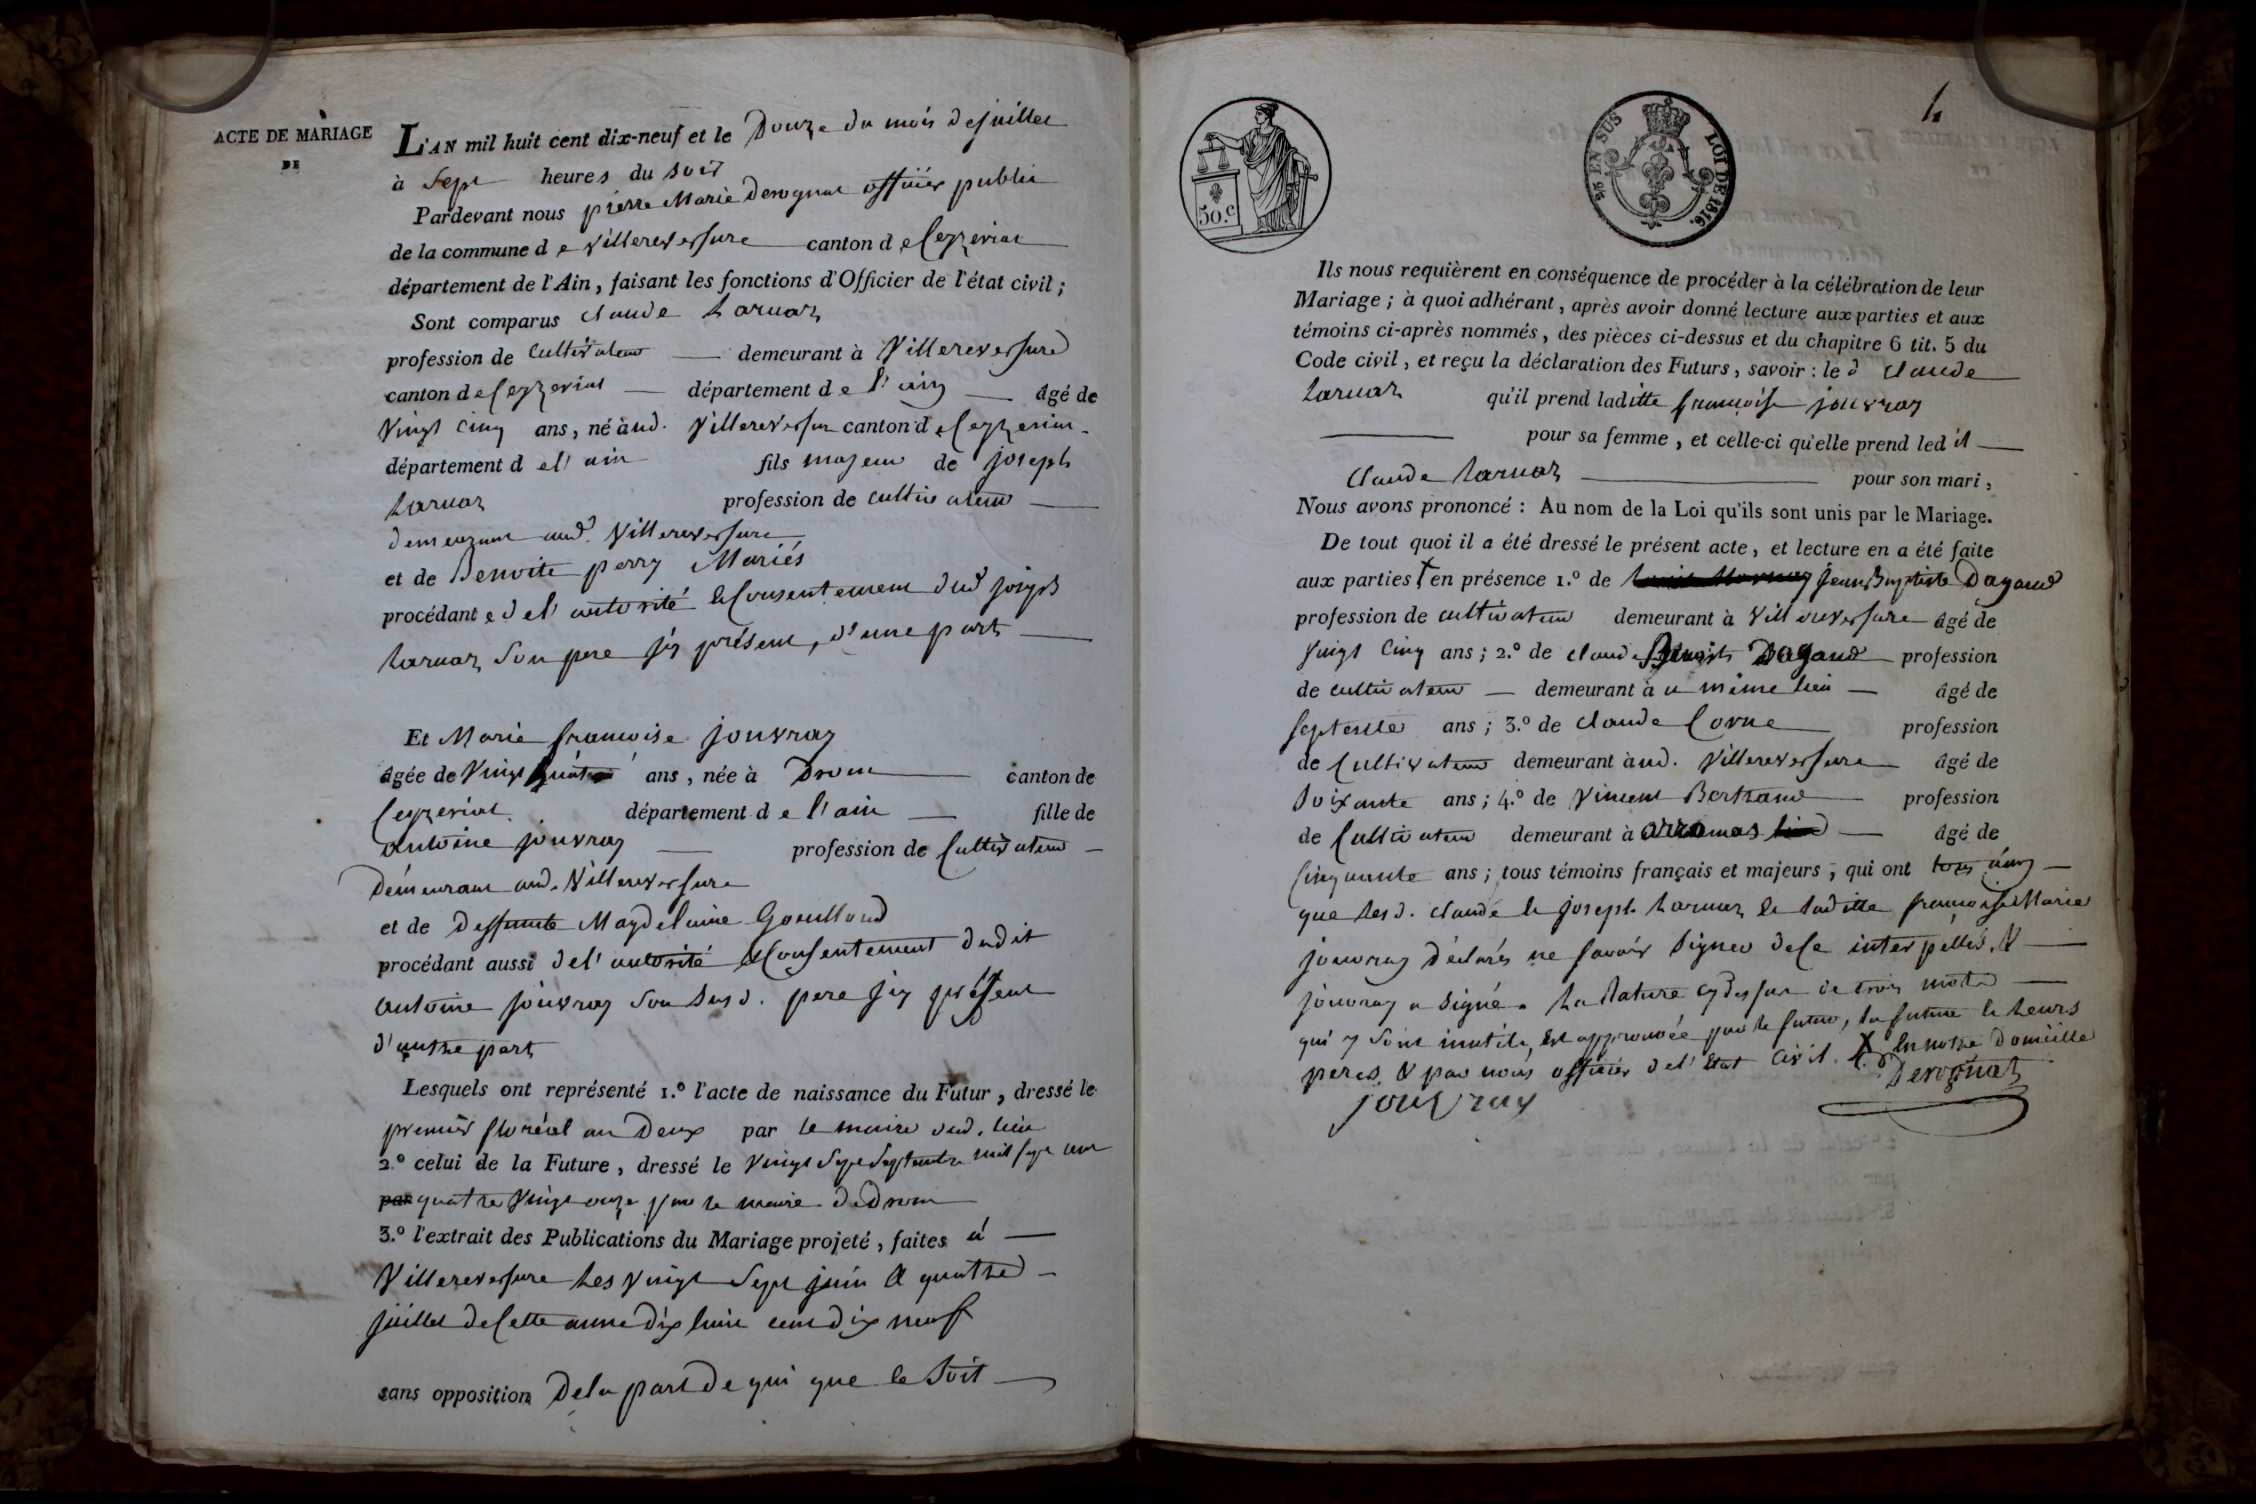 ACTE DE MARIAGE
DE
L'AN mil huit cent dix-neuf et le Douze du mois de juillet
à Sept heures du soir
Pardevant nous pierre Marie Derognat officier public
de la commune de Villereversure canton de Ceyzeriat
département de l'Ain, faisant les fonctions d'Officier de l'état civil;
Sont comparus claude Laruaz
profession de Cultivateur demeurant à Villereversure
canton de Ceyzeriat département de l'ain âgé de
Vingt Cinq ans, né aud. Villereversure canton de Ceyzeriat
département de l'ain fils majeur de joseph
Laruaz profession de cultivateur
demeurant aud. Villereversure
et de Benoite perry Mariés
procédant de l'autorité & Consentement dud joseph
Laruaz Son pere jcy présent, d'une part
Et Marie francoise jouvray
âgée de Vingt quatre ans, née à Drom canton de
Ceyzeriat département de l'ain fille de
antoine jouvray profession de Cultivateur
Démeurant aud. Villereversure
et de Deffunte Magdelaine Gouilloud
procédant aussi de l'autorité & Consentement dudit
antoine jouvray Son Susd. pere jcy présent
d'autre part
Lesquels ont représenté 1.º l'acte de naissance du Futur, dressé le
premier floréal an Deux par le maire dud. lieu
2.º celui de la Future, dressé le Vingt Sept Septembre mil sept cent
par quatre Vingt onze par le maire de Drom
3.º l'extrait des Publications du Mariage projeté, faites à
Villereversure Les Vingt Sept juin & quatre
juillet de Cette anne dix huit cent dix neuf
sans opposition De la part de qui que ce Soit
4
50.c
EN SUS
LOI DE 1816.
Ils nous requièrent en conséquence de procéder à la célébration de leur
Mariage; à quoi adhérant, après avoir donné lecture aux parties et aux
témoins ci-après nommés, des pièces ci-dessus et du chapitre 6 tit. 5 du
Code civil, et reçu la déclaration des Futurs, savoir: le d claude
Laruaz qu'il prend laditte françoise jouvray
pour sa femme, et celle-ci qu'elle prend ledit
Claude Laruaz pour son mari,
Nous avons prononcé: Au nom de la Loi qu'ils sont unis par le Mariage.
De tout quoi il a été dressé le présent acte, et lecture en a été faite
aux parties en présence 1.º de jean Baptiste Dagaud
profession de cultivateur demeurant à Villereversure âgé de
Vingt Cinq ans; 2.º de claude Benoit Dagaud profession
de cultivateur demeurant au même lieu âgé de
Septente ans; 3.º de claude Corne profession
de Cultivateur demeurant aud. Villereversure âgé de
Soixante ans; 4.º de Vincent Bertrand profession
de Cultivateur demeurant à arromas âgé de
Cinquante ans; tous témoins français et majeurs; qui ont
que Lesd. claude & joseph Laruaz & laditte françoise Marie
jouvray Déclarés ne Savoir Signer de Ce interpellés, &
jouvray a Signé. La Rature cy dessus de trois mots
qui y Sont inutile, Est approuvée par le futur, la future & Leurs
peres, & par nous officier de l'Etat Civil. En notre Domicille
jouvray Derognat